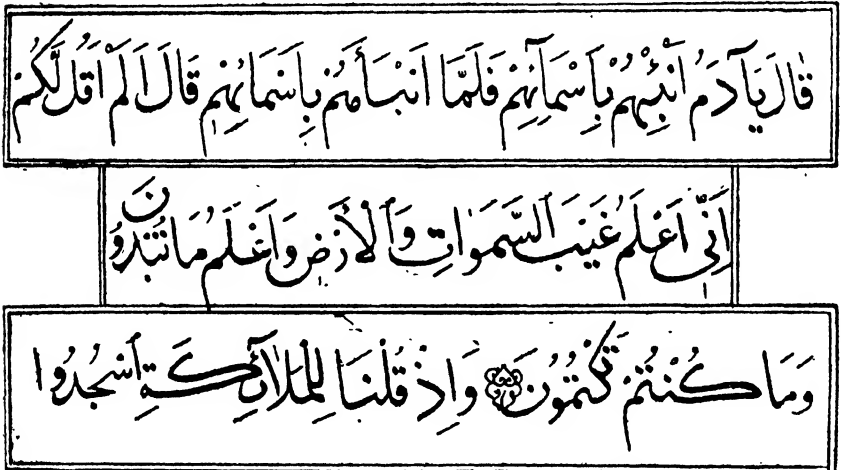 قَالَ يَآ اٰدَمُ اَنْبِئْهُمْ بِاَسْمَآئِهِمْ فَلَمَّا اَنْبَاَهُمْ بِاَسْمَائِهِمْ قَالَ اَلَمْ اَقُلْ لَكُمْ
اِنِّى اَعْلَمُ غَيْبَ السَّمَوَاتِ وَالْاَرْضِ وَاَعْلَمُ مَا تُبْدُونَ
وَمَا كُنْتُمْ تَكْتُمُونَ وَاِذْ قُلْنَا لِلْمَلَائِكَةِ اسْجُدُوا